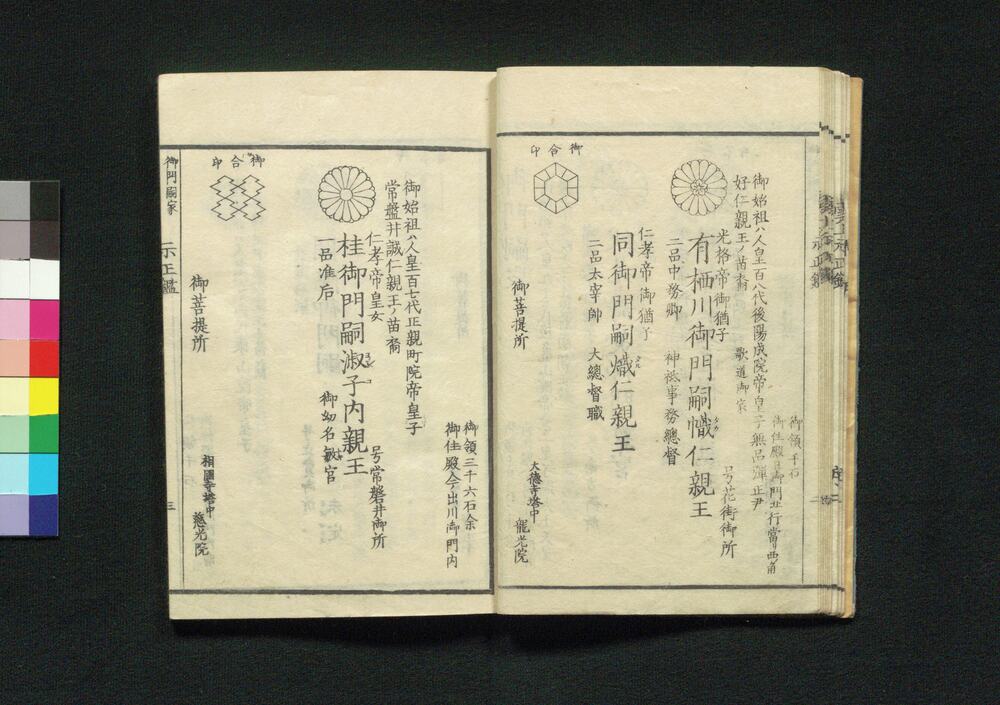 御領千石
御住殿
御始祖ハ人皇百八代後陽成院帝皇子無品彈正尹
好仁親王ノ苗裔 歌道御家
光格帝御猶子
号花街御所
有栖川御門嗣幟仁親王
二品中務卿 神祇事務總督
仁孝帝御猶子
同御門嗣熾仁親王
二品太宰帥 大總督職
御合印
御菩提所
大德寺塔中 龍光院
御領三千六石余
御住殿今出川御門内
御始祖ハ人皇百七代正親町院帝皇子
常盤井誠仁親王ノ苗裔
仁孝帝皇女
号常磐井御所
桂御門嗣淑子内親王
御幼名敏宮
一品准后
御合印
御菩提所
相國寺塔中 慈光院
御門嗣家
示正鑑
三